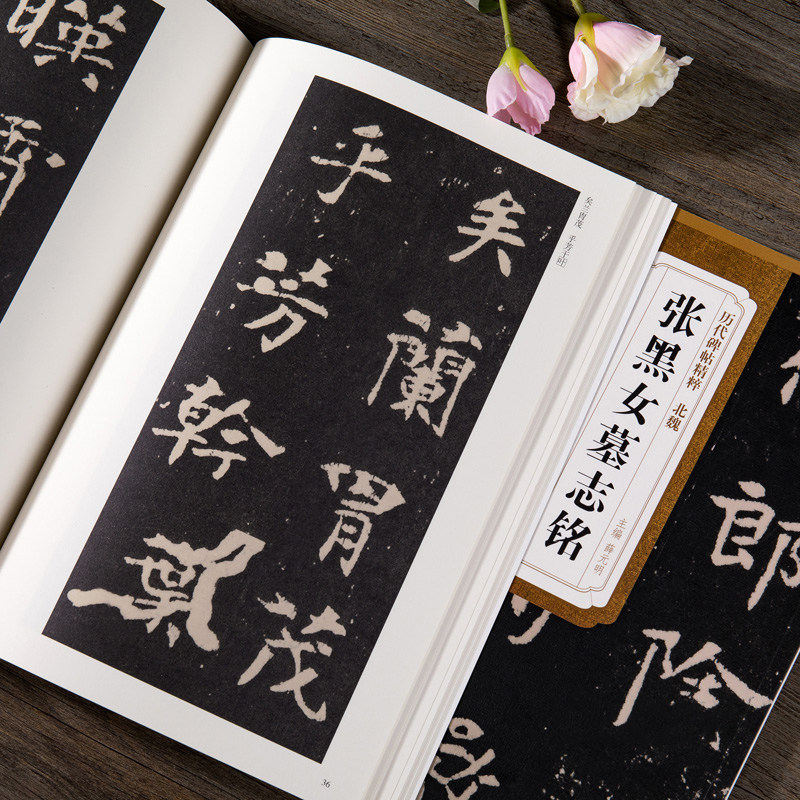 矣蘭胄茂
乎芳幹葉
暎霄
矣兰胄茂 乎芳干叶
36
历代碑帖精粹 北魏
张黑女墓志铭
主编 薛元明
郎
除